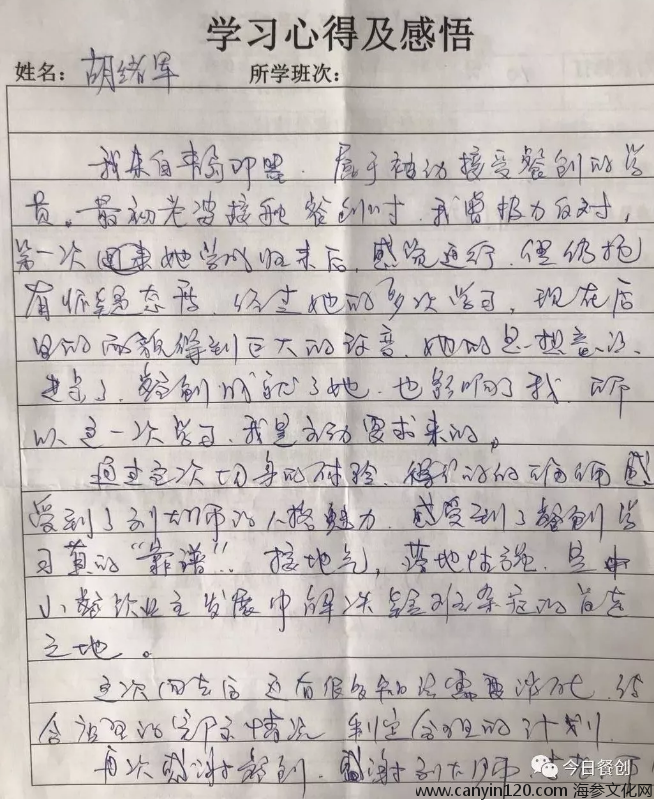 学习心得及感悟
姓名：胡绪军 所学班次：
我来自青岛即墨，属于被动接受餐创的学
员。最初老婆接触餐创时，我曾极力反对，
第一次她学成归来后，感觉还行，但仍抱
有怀疑态度，经过她的多次学习，现在店
里的面貌得到巨大的改变，她的思想意识
进步了，餐创成就了她，也影响了我，所
以这一次学习，我是主动要求来的。
通过这次切身的体验，感
受到了刘大师的人格魅力，感受到了餐创学
习真的“靠谱”！接地气，落地性强，是中
小餐饮业主发展中解决疑难杂症的首选
之地。
这次回去后还有很多知识需要消化，结
合店里的实际情况，制定合理的计划
再次感谢餐创，感谢刘大师，
今日餐创
www.canyin120.com 海参文化网